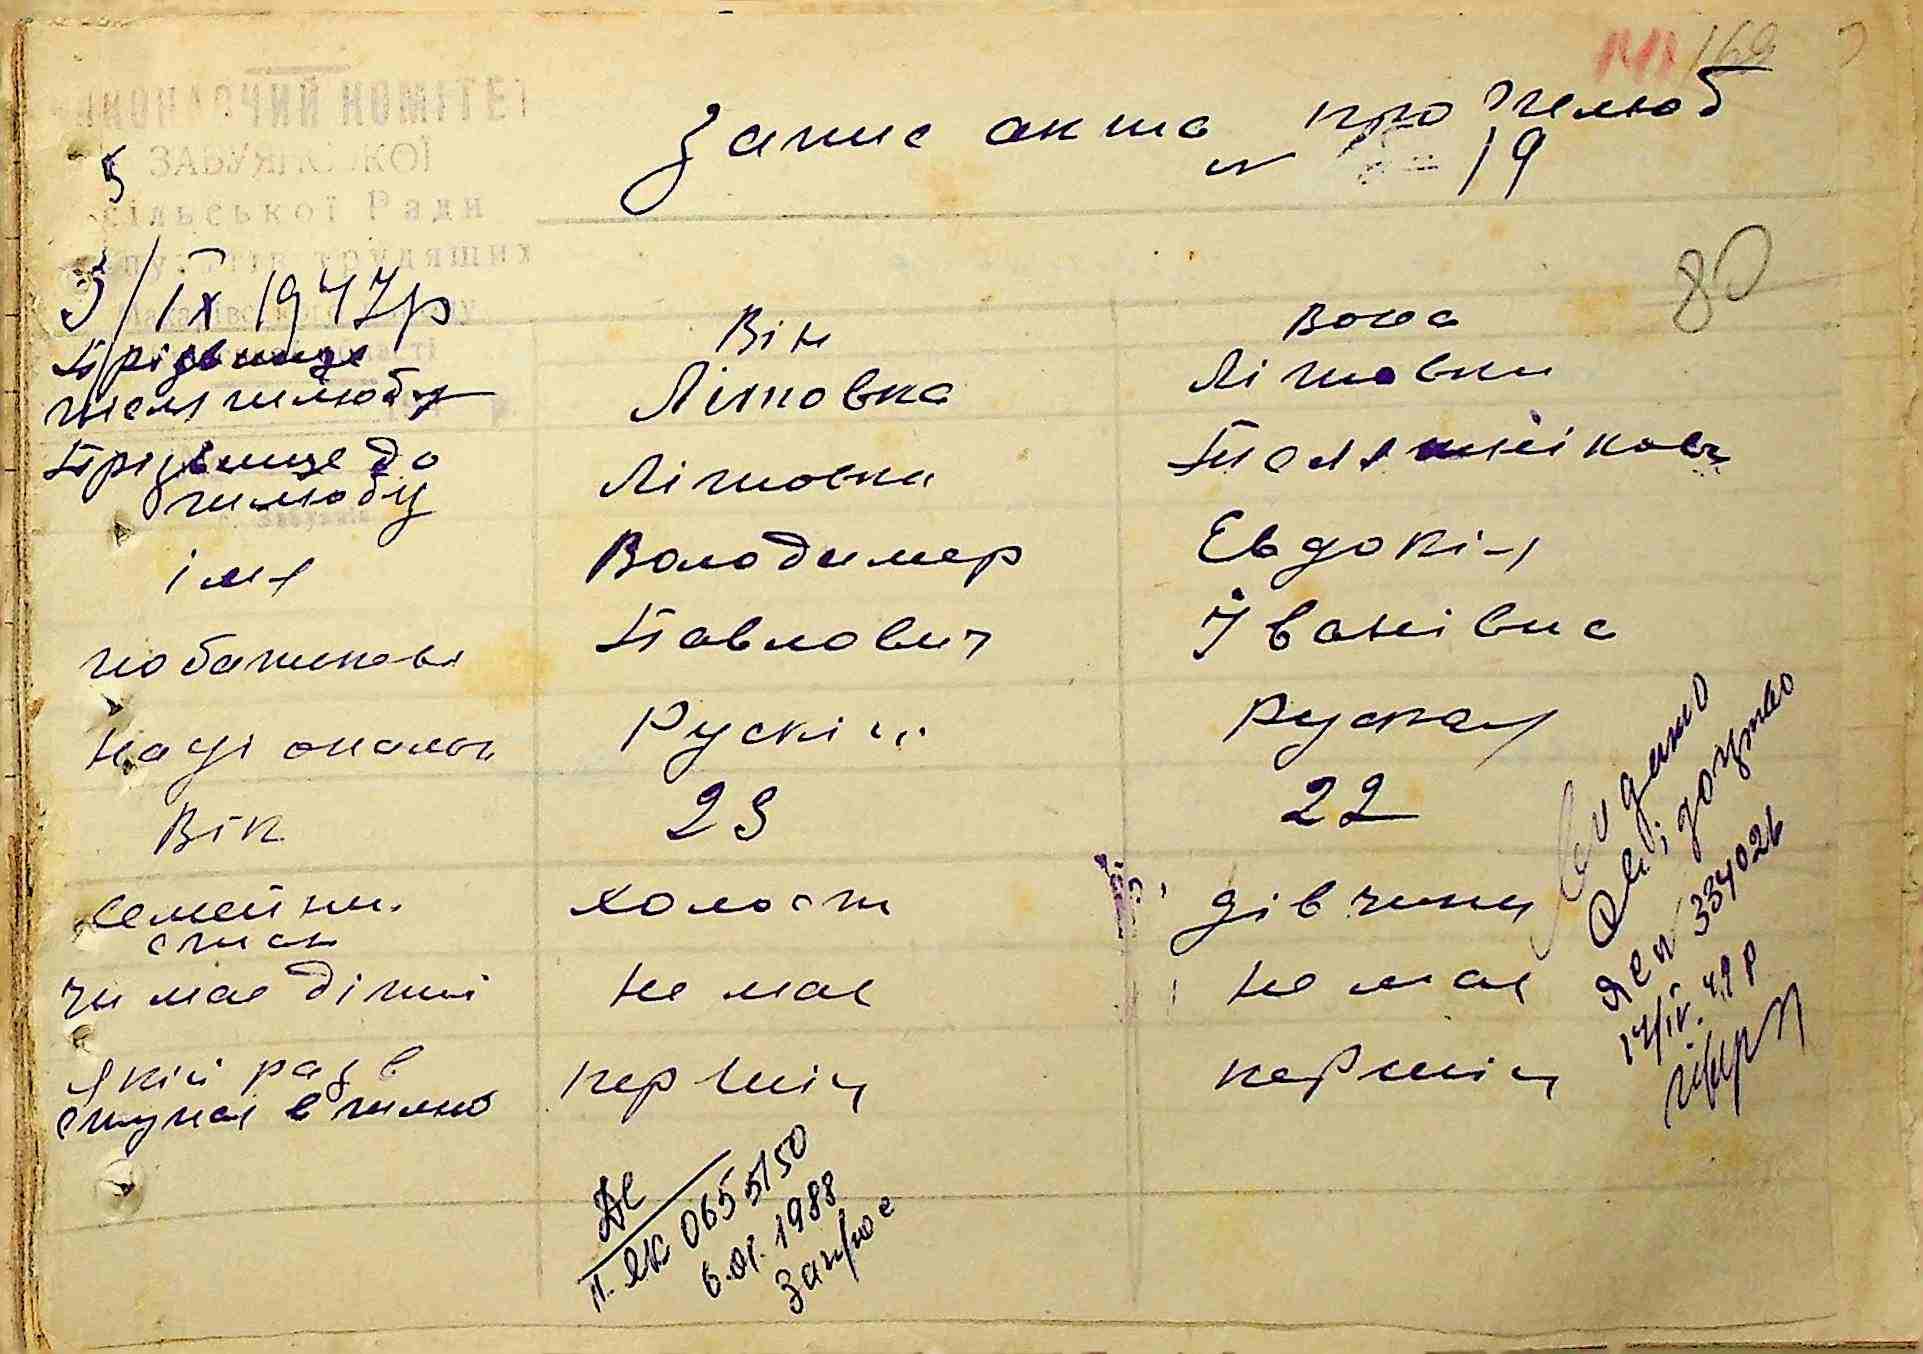 169
ВИКОНАВЧИЙ КОМІТЕТ
ЗАБУЯНСЬКОЇ
сільської Ради
депутатів трудящих
Запис акта про шлюб
№ 19
5
80
3/IX 1947р
Він Вона
Прізвище
після шлюбу Літовка Літовка
Прізвище до
шлюбу Літовка
імя Володимер Евдокія
по батькові Павлович Іванівна
націонольн Рускій Руская
Вік 23 22
семейни
стан холост дівчина
чи має дітий не має не має
Який раз в
ступає в шлюб першій першій
Видано
і
334026
17/IV. 49 р
II. ЯК 0655150
6.01.1988